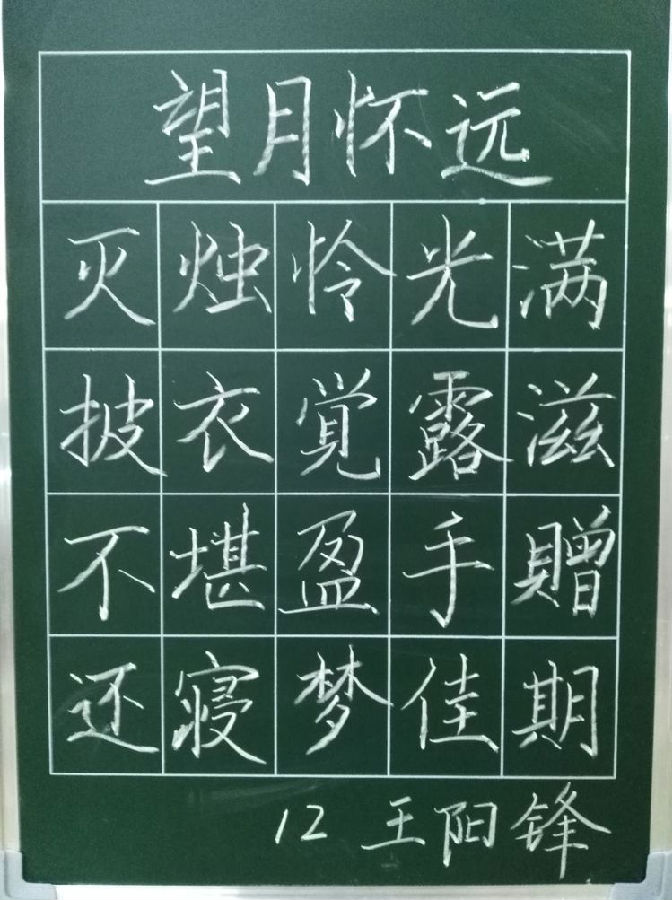 望月怀远
灭烛怜光满
披衣觉露滋
不堪盈手赠
还寝梦佳期
12 王阳锋